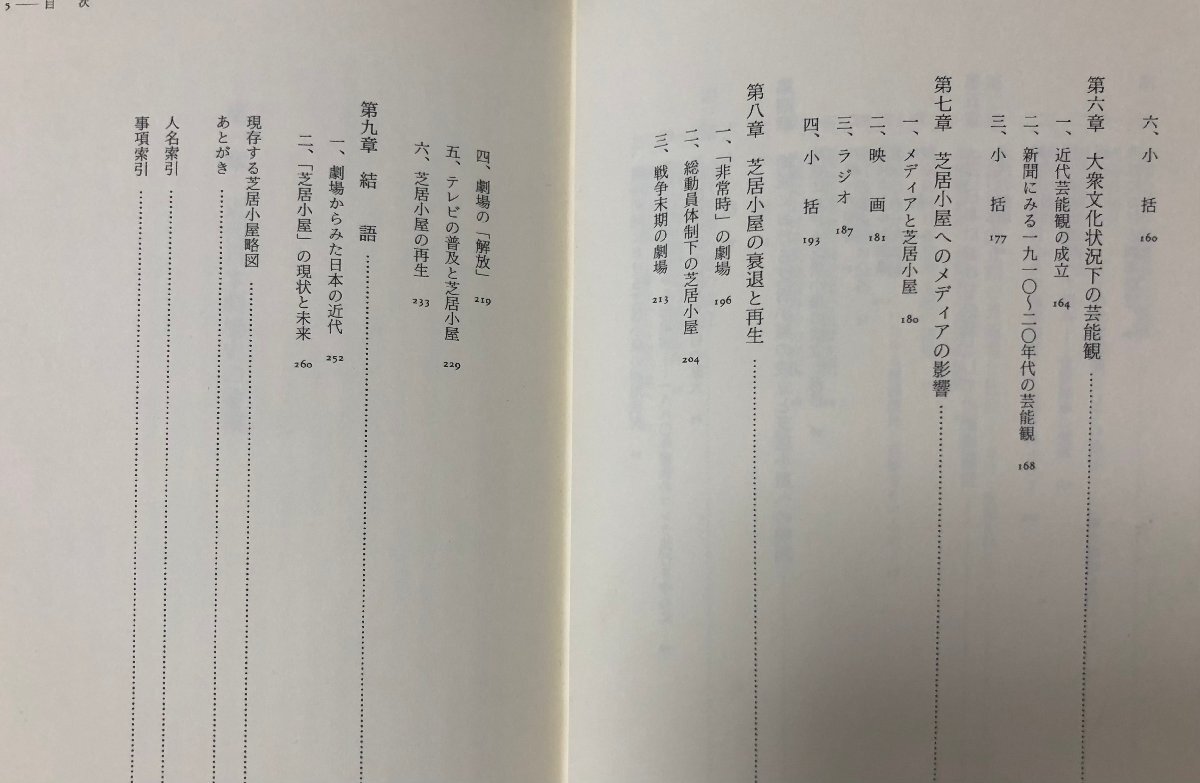 六、小括 160
第六章 大衆文化状況下の芸能観……
一、近代芸能観の成立 164
二、新聞にみる一九一〇〜二〇年代の芸能観 168
三、小括 177
第七章 芝居小屋へのメディアの影響……
一、メディアと芝居小屋 180
二、映画 181
三、ラジオ 187
四、小括 193
第八章 芝居小屋の衰退と再生……
一、「非常時」の劇場 196
二、総動員体制下の芝居小屋 204
三、戦争末期の劇場 213
四、劇場の「解放」 219
五、テレビの普及と芝居小屋 229
六、芝居小屋の再生 233
第九章 結語……
一、劇場からみた日本の近代 252
二、「芝居小屋」の現状と未来 260
現存する芝居小屋略図……
あとがき……
人名索引……
事項索引……
5──目次